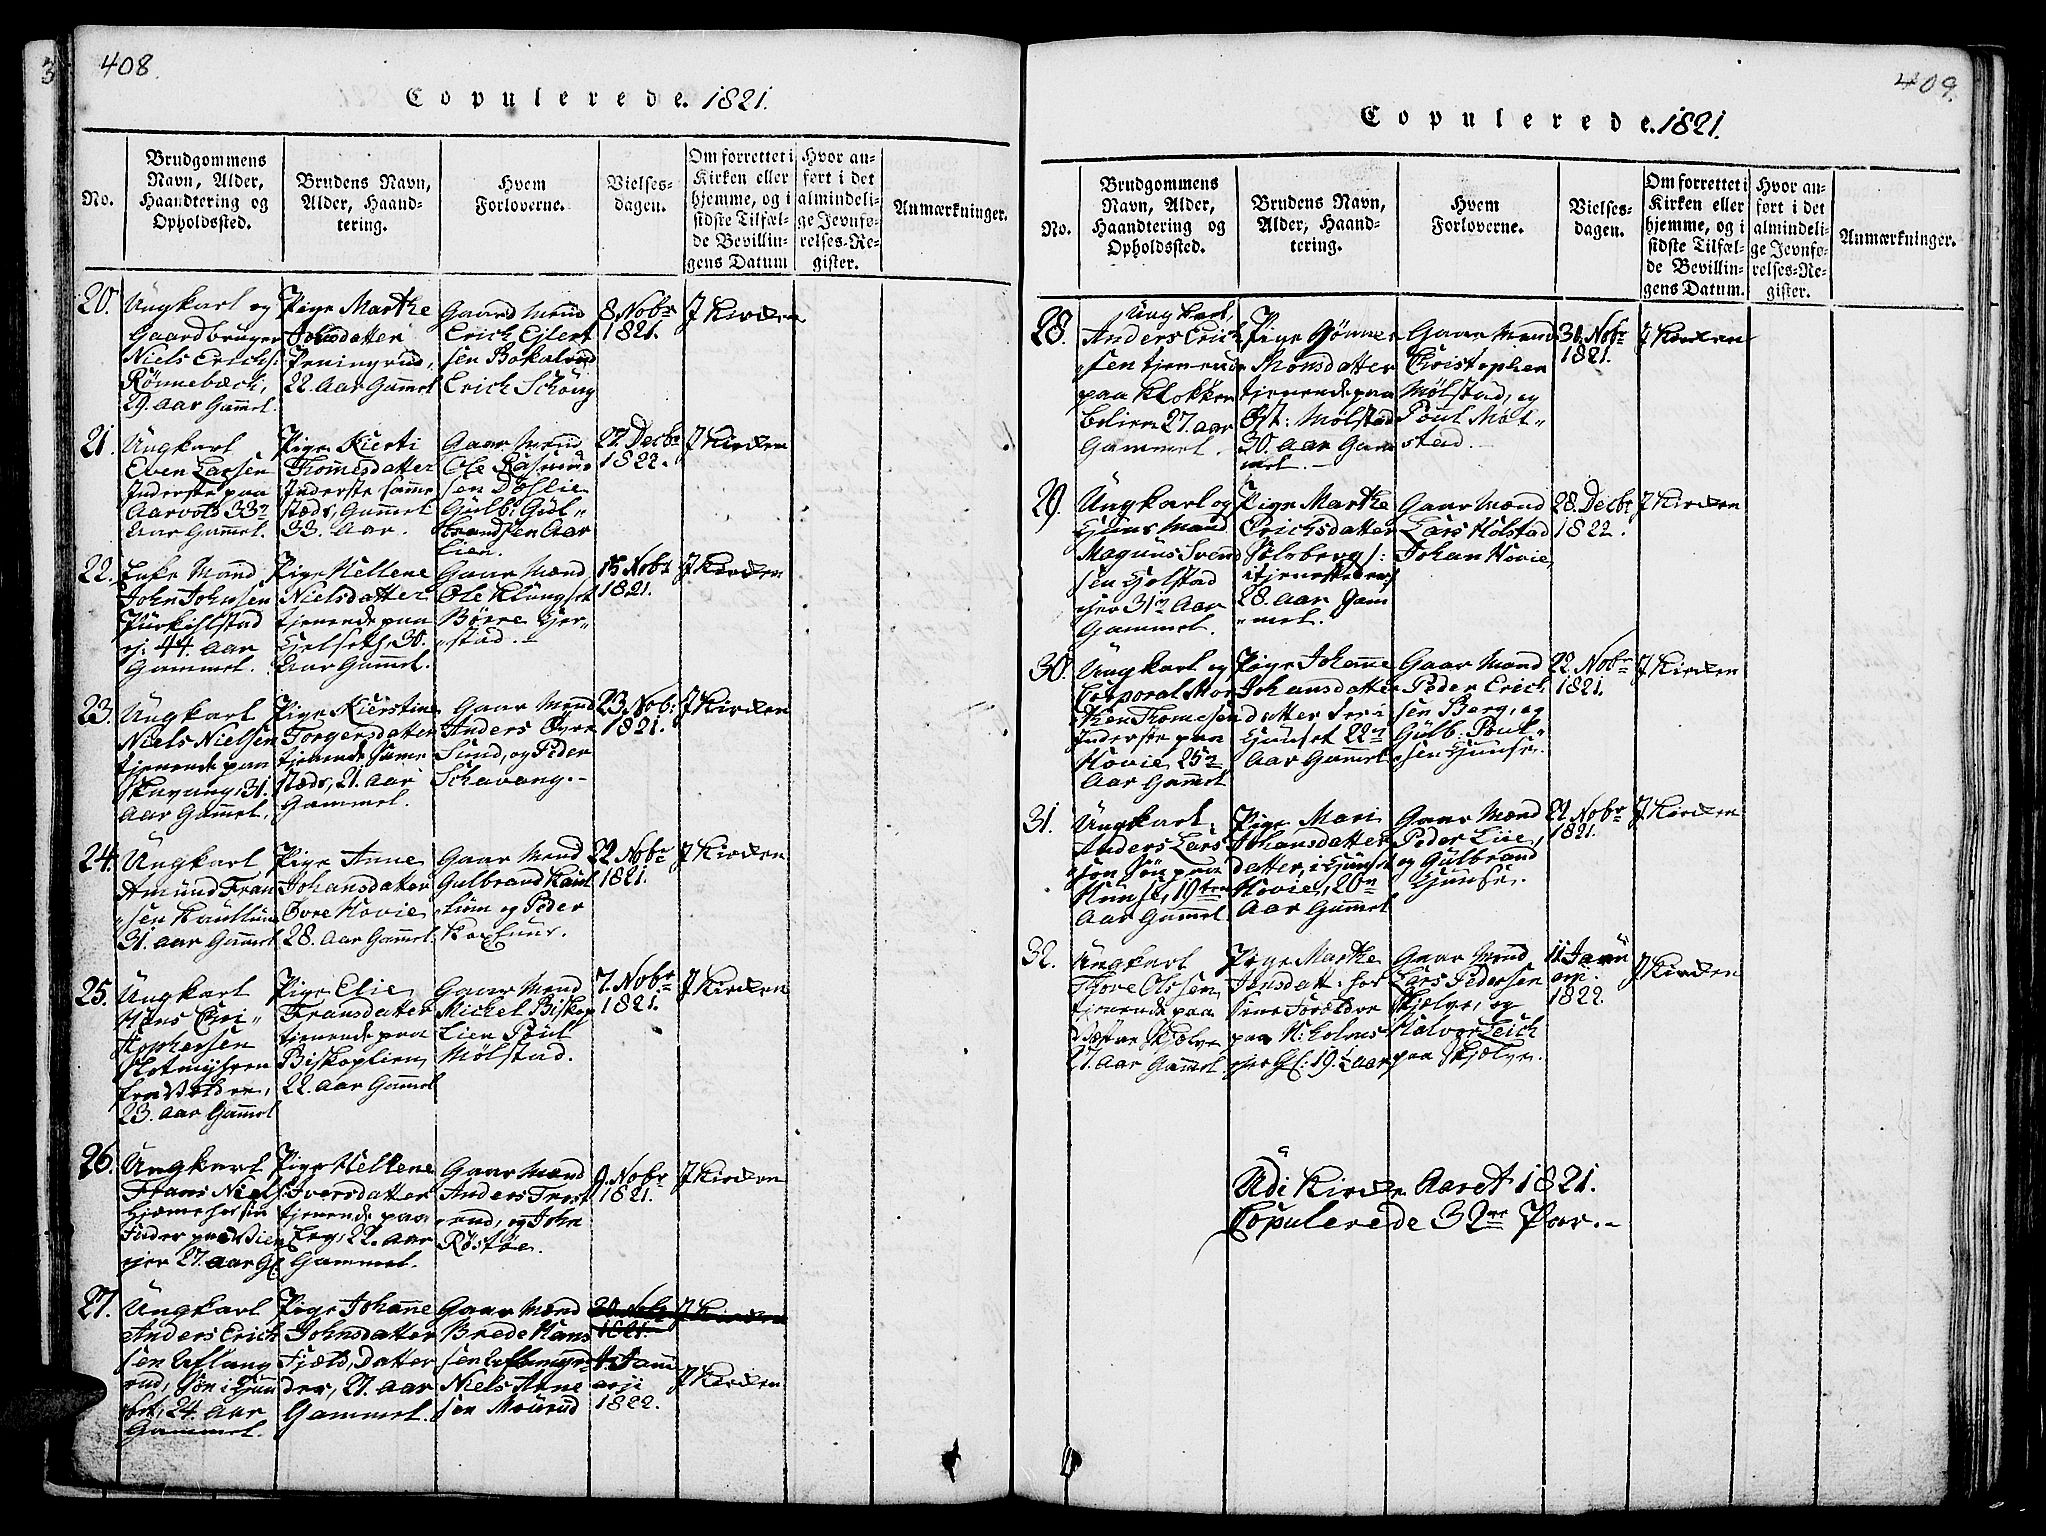 408.
Copulerede. 1821.
No.
Brudgommens
Navn, Alder,
Haandtering og
Opholdssted.
Brudens Navn,
Alder, Haand-
tering.
Hvem
Forloverne.
Vielses-
dagen.
Om forrettet i
Kirken eller
hjemme, og i
sidste Tilfæl-
de Bevillin-
gens Datum
Hvor an-
ført i det
almindeli-
ge Jevnfø-
relses-Re-
gister.
Anmærkninger.
20.
Ungkarl og
Gaardbruger
Niels Erichs:
Rönnebæck,
29. Aar Gammel.
Pige Marthe
Johsdatter
Peningrud,
22. Aar Gamel
Gaard Mend
Erich Ejlert
sen Bokalrud
Erich Schöng
8 Nobr
1821.
J Kirken
21.
Ungkarl
Even Larsen
Inderste paa
Aarvold 33
Aar Gammel.
Pige Kiersti
Thomesdatter
Inderste samme
stæds, Gammel
33. Aar.
Gaar Mend
Ole Rasmus
sen Döhlie
Gulb: Gul-
brandsen Aar
lien.
27. Decbr
1822.
J Kirken
22.
Enke Mand
John Johnsen
44. Aar
Gammel.
Pige Hellene
Nielsdatter
tjenende paa
Gjelseth, 30.
Aar Gammel.
Gaar Mænd
Ole Klüngset
Börre Gjer-
stad.
15 Nobr
1821.
J Kirken
23.
Ungkarl
Niels Nielsen
tjenende paa
Skavang, 31.
Aar Gammel.
Pige Kierstine
Torgersdatter
tjenende Same
stæds, 21. Aar
Gammel.
Gaar Mend
Anders Övre
Sund, og Peder
Schavang.
23. Nob:
1821.
J Kirken
24.
Ungkarl
Amund Fran
sen Haullum
31. Aar Gammel
Pige Anne
Johansdatter
Övre Hovie
28. Aar Gammel.
Gaar Mend
Gulbrand Haul
lum og Peder
22. Nobr
1821.
J Kirken
25.
Ungkarl
Hans Chri-
stophersen
Slotmyhren
23. Aar Gammel
Pige Elie
Fransdatter
tjenende paa
Biskoplien,
22. Aar Gammel
Gaar Mend
Michel Biskop
lien Poul
Mölstad.
7. Nobr
1821.
J Kirken
26.
Ungkarl
Frans Niels
27. Aar Gl
Pige Hellene
Iversdatter
tjenende paa
Berg, 22. Aar
Gammel.
Gaar Mænd
Anders Frost
rud, og John
Röstöe.
9. Nobr
1821.
J Kirken
27.
Ungkarl
Anders Erich
sen Uflang
rud, Sön i Huu
set, 24. Aar
Gammel.
Pige Johanne
Johnsdatter
Fjæld, Datter
der, 27. Aar
Gammel.
Gaar Mænd
Brede Hans
Niels Arne
sen Mourud
30. Nobr
1821.
4. Janu
arji
1822.
J Kirken
J Kirken
409.
Copulerede. 1821.
No.
Brudgommens
Navn, Alder,
Haandtering og
Opholdssted.
Brudens Navn,
Alder, Haand-
tering.
Hvem
Forloverne.
Vielses-
dagen.
Om forrettet i
Kirken eller
hjemme, og i
sidste Tilfæl-
de Bevillin-
gens Datum.
Hvor an-
ført i det
almindeli-
ge Jevnfø-
relses-Re-
gister.
Anmærkninger.
28.
Ung karl,
Anders Erich
sen tjenende
paa Klokker
27. aar
Gammel.
Pige Gönner
Monsdatter
tjenende paa
Öst: Mölstad
30. Aar Gam
mel.
Gaar Mænd
Christopher
Mölstad, og
Poul Möl-
stad.
30. Nobr
1821.
J Kirken
29.
Ungkarl og
Huus Mand
Magnus Svend
sen Gjolstad
31 Aar
Gammel.
Pige Marthe
Erichsdatter
Solsberg,
28. Aar Gam
mel.
Gaar Mænd
Lars Holstad
Johan Hovie
28. Decbr
1822.
J Kirken
30.
Ungkarl og
Corporal Mor
then Thomesen
Inderste paa
Hovie 25
Aar Gammel
Pige Johanne
Johansdatter
datter der i
Huuset 22
Aar Gammel
Gaar Mænd
Peder Erich
sen Berg, og
Gulb: Poul-
sen Hunse.
22. Nobr
1821.
J Kirken
31.
Ungkarl
Anders Lars
sön Sön paa
Hunse, 19
Aar Gammel
Pige Mari
Johansdatter
datter, i Huuset
Hovie, 20
Aar Gammel
Gaar Mænd
Peder Lie,
og Gulbrand
Hunse.
22. Nobr
1821.
J Kirken
32.
Ungkarl
Thore Olssen
tjenende paa
Skjelve
27. Aar Gammel
Pige Marthe
Jensdatt: hos
sine Foreldre
paa N: Holms
ejer Gl: 19 1/2 Aar
Gaar Mænd
Lars Pedersen
Skjelve, og
Halvor Erich
paa Skjelve.
11 Janu
arji
1822.
J Kirken
Udi Kirken Aaret 1821.
Copulerede 32 Par.